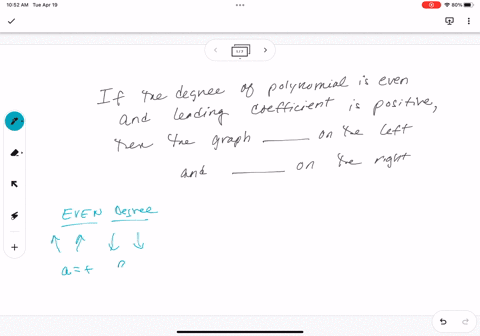 10:52 AM Tue Apr 19
80%
1/1
If the degree of polynomial is even
and leading coefficient is positive,
then the graph ____ on the left
and ____ on the right
EVEN Degree
↑ ↑ ↓ ↓
a = +